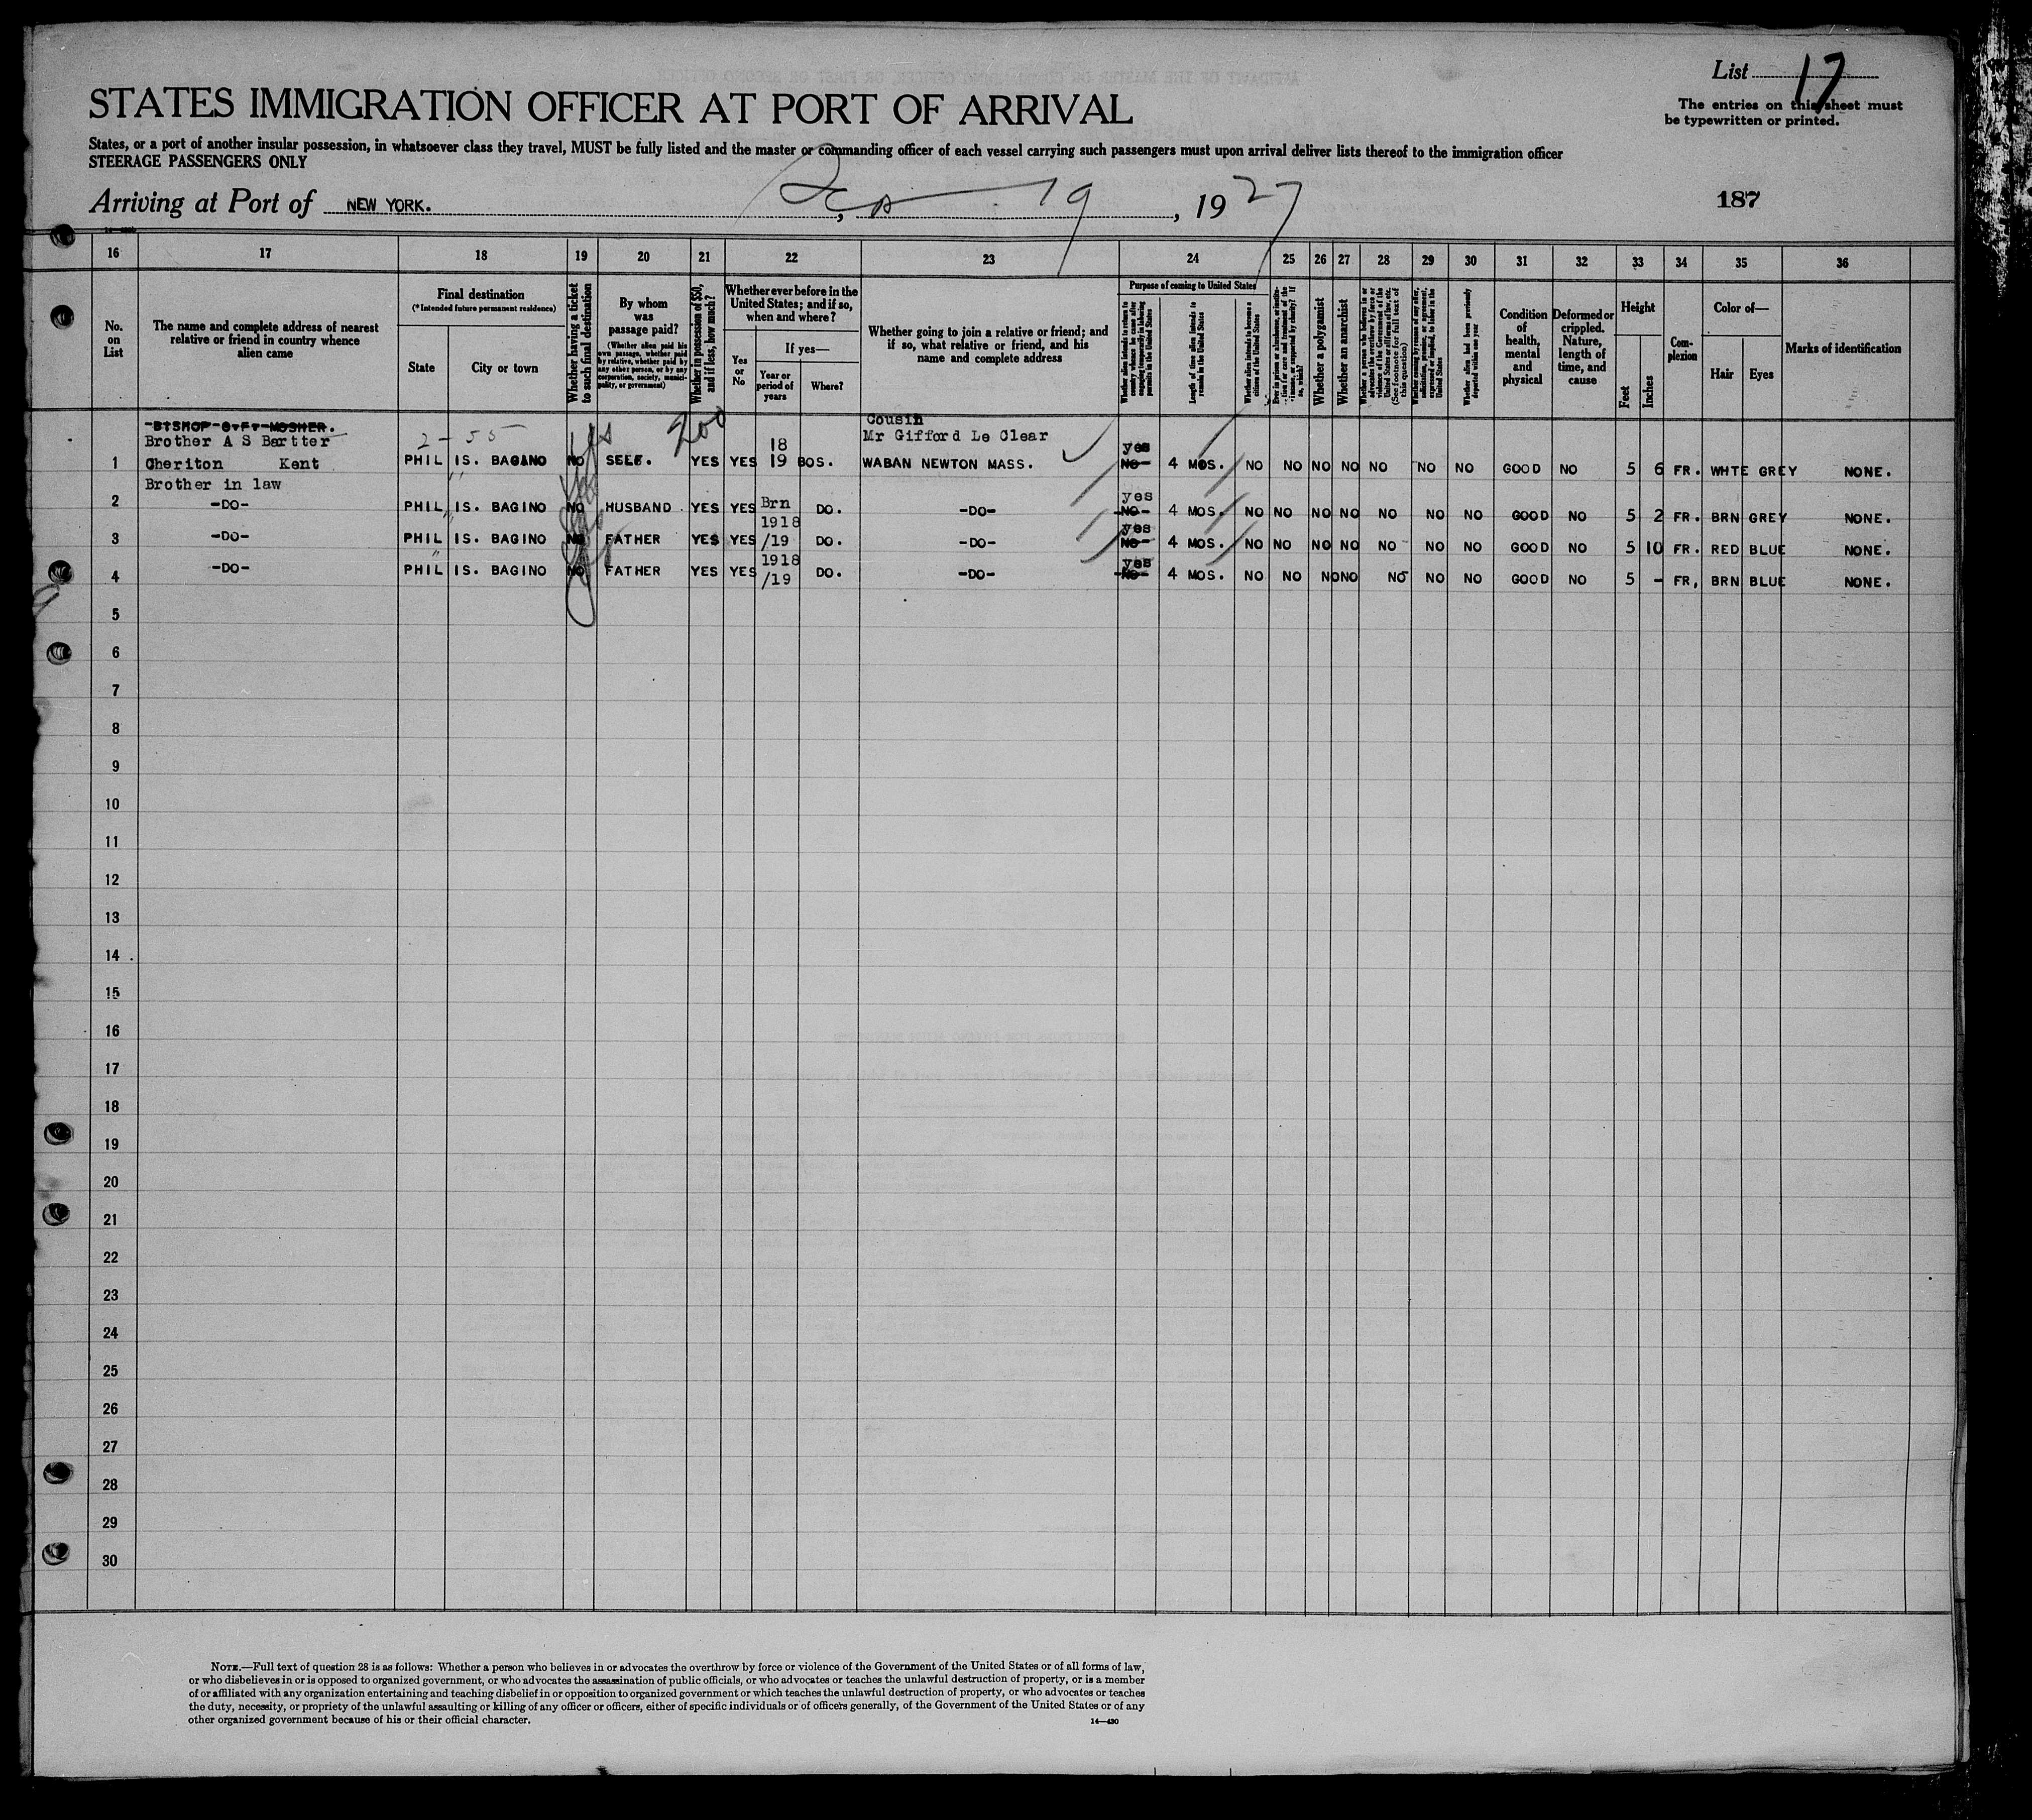 List 17
The entries on this sheet must
be typewritten or printed.
STATES IMMIGRATION OFFICER AT PORT OF ARRIVAL
States, or a port of another insular possession, in whatsoever class they travel, MUST be fully listed and the master or commanding officer of each vessel carrying such passengers must upon arrival deliver lists thereof to the immigration officer
STEERAGE PASSENGERS ONLY
Arriving at Port of NEW YORK. , 19 , 1927
187
16 17 18 19 20 21 22 23 24 25 26 27 28 29 30 31 32 33 34 35 36
No. on List
The name and complete address of nearest relative or friend in country whence alien came
Final destination
(*Intended future permanent residence)
State
City or town
Whether having a ticket to such final destination
By whom was passage paid?
(Whether alien paid his own passage, whether paid by relative, whether paid by any other person, or by any corporation, society, municipality, or government)
Whether in possession of $50, and if less, how much?
Whether ever before in the United States; and if so, when and where?
Yes or No
If yes—
Year or period of years
Where?
Whether going to join a relative or friend; and if so, what relative or friend, and his name and complete address
Purpose of coming to United States
Length of time alien intends to remain in the United States
Whether alien intends to become a citizen of the United States
Whether a polygamist
Whether an anarchist
(See footnote for full text of this question)
Whether alien had been previously deported within one year
Condition of health, mental and physical
Deformed or crippled. Nature, length of time, and cause
Height
Feet
Inches
Complexion
Color of—
Hair
Eyes
Marks of identification
BISHOP G.F. MOSHER. Cousin
Brother A S Bartter 2-55 yes 200 18 Mr Gifford Le Clear yes
1 Cheriton Kent PHIL IS. BAGANO NO SELF. YES YES 19 BOS. WABAN NEWTON MASS. NO 4 MOS. NO NO NO NO NO NO NO GOOD NO 5 6 FR. WHTE GREY NONE.
Brother in law
2 -DO- PHIL IS. BAGINO NO HUSBAND YES YES Brn DO. -DO- yes NO 4 MOS. NO NO NO NO NO NO NO GOOD NO 5 2 FR. BRN GREY NONE.
3 -DO- PHIL IS. BAGINO NO FATHER YES YES 1918/19 DO. -DO- yes NO 4 MOS. NO NO NO NO NO NO NO GOOD NO 5 10 FR. RED BLUE NONE.
4 -DO- PHIL IS. BAGINO NO FATHER YES YES 1918/19 DO. -DO- yes NO 4 MOS. NO NO NO NO NO NO NO GOOD NO 5 - FR, BRN BLUE NONE.
5
6
7
8
9
10
11
12
13
14
15
16
17
18
19
20
21
22
23
24
25
26
27
28
29
30
NOTE.—Full text of question 28 is as follows: Whether a person who believes in or advocates the overthrow by force or violence of the Government of the United States or of all forms of law,
or who disbelieves in or is opposed to organized government, or who advocates the assassination of public officials, or who advocates or teaches the unlawful destruction of property, or is a member
of or affiliated with any organization entertaining and teaching disbelief in or opposition to organized government or which teaches the unlawful destruction of property, or who advocates or teaches
the duty, necessity, or propriety of the unlawful assaulting or killing of any officer or officers, either of specific individuals or of officers generally, of the Government of the United States or of any
other organized government because of his or their official character.
14—430